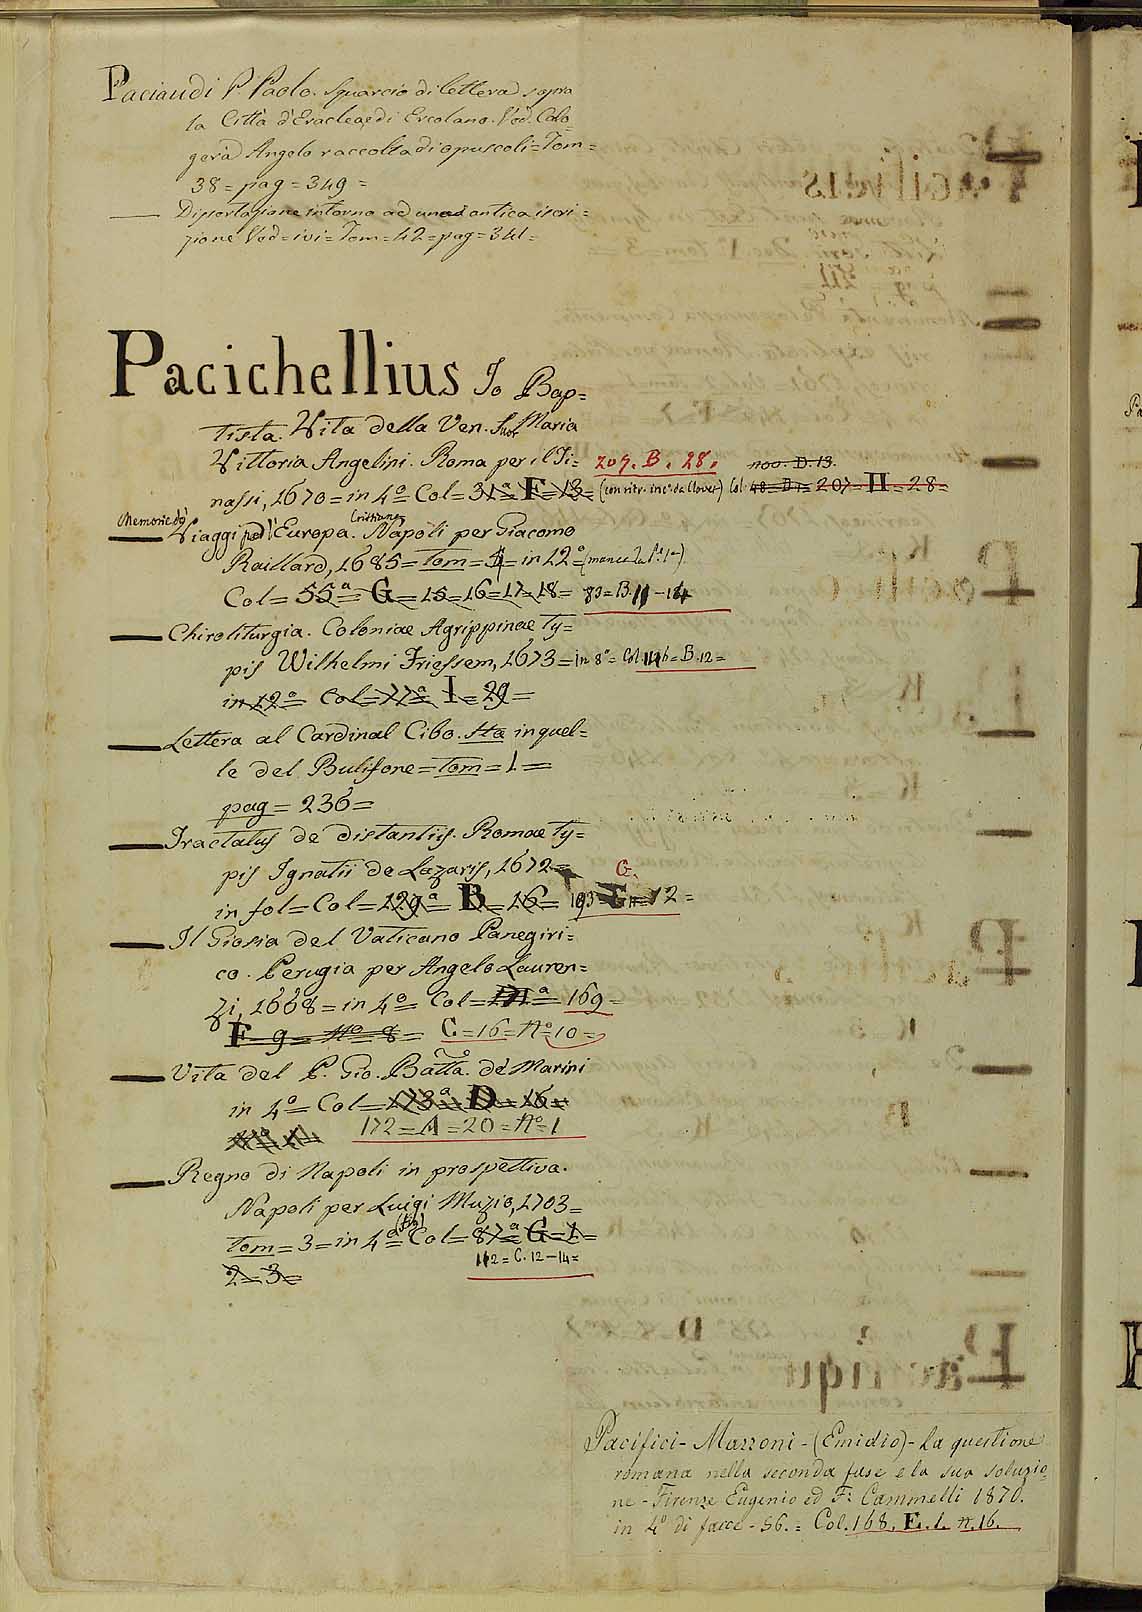 Paciaudi P. Paolo. Squarcio di lettera sopra
la Città d'Eraclea, e di Ercolano. Ved. Calo-
gerà Angelo raccolta di opuscoli = Tom =
38 = pag = 349 =
— Disertazione intorno ad una antica iscri =
zione Ved = ivi = Tom = 42 = pag = 341 =
Pacichellius Jo Bap =
tista. Vita della Ven. Suor Maria
Vittoria Angelini. Roma per il Ti = 207. B. 28. 100. D. 13.
nassi, 1670 = in 4º = Col = 31ª = F = 13 = (con ritr. inc. da Clover) Col. 48 = D = 207 = H = 28 =
— Memorie de' Viaggi per l'Europa Cristiana. Napoli per Giacomo
Raillard, 1685 = Tom = = in 12º = (manca la P. 1ª)
Col = 55ª = G = 15 = 16 = 17 = 18 = 83 = B. 11 - 14
— Chiroliturgia. Coloniae Agrippinae ty =
pis Wilhelmi Friessem, 1673 = in 8º = Col. 116 = B. 12 =
in 12º = Col = 77ª = I = 29 =
— Lettera al Cardinal Cibo. Sta in quel =
le del Bulifone = Tom = 1 =
pag = 236 =
— Tractatus de distantiis. Romae ty =
pis Ignatii de Lazaris, 1672 = G.
in fol = Col = 129ª = B = 16 = 193 = = 12 =
— Il Giosia del Vaticano Panegiri =
co. Perugia per Angelo Lauren =
zi, 1668 = in 4º = Col = 169 =
F = 9 = Nº = 8 = C = 16 = Nº 10 =
— Vita del P. Gio. Batta. de' Marini
in 4º = Col = 173ª = D = 16 =
172 = A = 20 = Nº 1
— Regno di Napoli in prospettiva.
Napoli per Luigi Muzio, 1703 =
Tom = 3 = in 4º = (fig) Col = 87ª = G = 1 =
2 = 3 = 112 = C. 12 - 14 =
Pacifici - Mazzoni - (Emidio) - La questione
romana nella seconda fase e la sua soluzio
ne - Firenze Eugenio ed F: Cammelli 1870.
in 4º di facce - 56. = Col. 168. E. 1. n. 16.